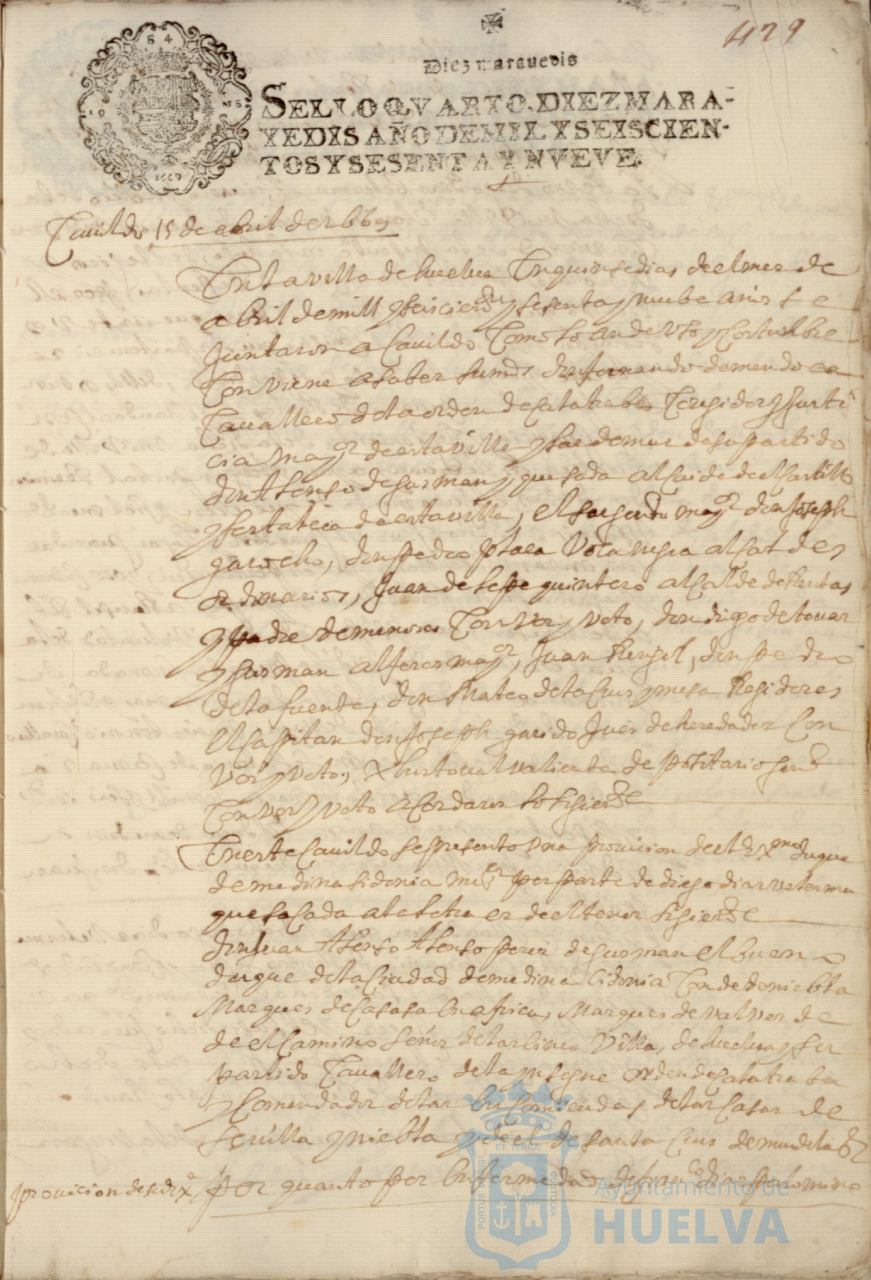 479
Diez maravedis
SELLO QVARTO, DIEZ MARA-
VEDIS AÑO DE MIL Y SEISCIEN-
TOS Y SESENTA Y NVEVE.
Cavildo 15 de abril de 1669
En la villa de huelva En quinse dias de el mes de
abril de mill y seiscientos y sesenta y nuebe años se
Juntaron a Cavildo Como lo an de uso y Costumbre
Conviene a saber sumd don fernando de mendoca
Cavallero de la orden de Calatraba Coregidor y Justi
cia mayr de esta villa y las demas de su partido
don Alonso de Gusman y quesada alcaide de el Castillo
y fortaleca de esta villa, el sargento mayr don Joseph
garocho, don pedro placa alcaldes
ordinarios, Juan de lepe quintero alcalde de
y padre de menores Con voz y voto, don diego de touar
y Gusman alferes mayr, Juan Rangel, don pedro
de la fuente, don Mateo de la Crus y mesa Regidores
El Capitan don Joseph garido Jues de heredades Con
vos y voto, Xpristoual valiente depositario genl
Con vos y voto acordaron lo sigiente
En este Cavildo se presento una provicion de el Exmo duque
de medina sidonia mi sr por parte de diego dias
que sacada a la letra es de el tenor sigiente
don Juan Alonso peres de Gusman el bueno
duque de la Ciudad de medina sidonia Conde de niebla
Marques de Casasa en africa, Marques de valverde
de el Camino señor de las Villas de huelva y su
partido Cavallero de la ynsigne orden de Calatraba
y Comendador de las encomiendas de las Casas de
sevilla y niebla y de el de santa Crus de mudela &
provicion de su Exa
por quanto por enfermedad de franco dias palomino
PORTUS MARIS ET TERRAE CUSTODIA
Ayuntamiento de
HUELVA